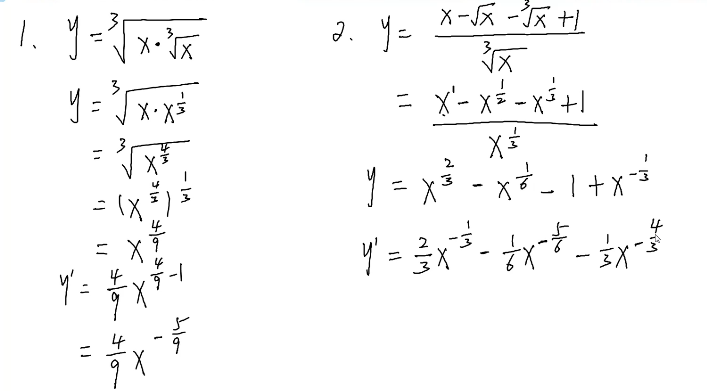 1. y = ∛(x·∛x)
y = ∛(x·x^(1/3))
= ∛(x^(4/3))
= (x^(4/3))^(1/3)
= x^(4/9)
y' = 4/9 x^(4/9 - 1)
= 4/9 x^(-5/9)
2. y = (x - √x - ∛x + 1)/∛x
= (x^1 - x^(1/2) - x^(1/3) + 1)/x^(1/3)
y = x^(2/3) - x^(1/6) - 1 + x^(-1/3)
y' = 2/3 x^(-1/3) - 1/6 x^(-5/6) - 1/3 x^(-4/3)